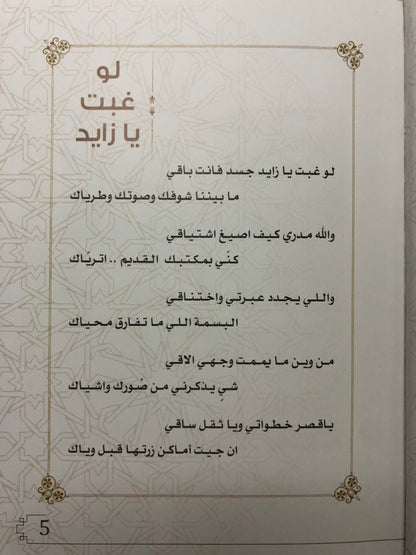 لو
غبت
يا زايد
لو غبت يا زايد جسد فانت باقي
ما بيننا شوفك وصوتك وطرياك
والله مدري كيف اصيغ اشتياقي
كنّي بمكتبك القديم .. اتريّاك
واللي يجدد عبرتي واختناقي
البسمة اللي ما تفارق محياك
من وين ما يممت وجهي الاقي
شيٍ يذكرني من صُورك واشياك
ياقصر خطواتي ويا ثقل ساقي
ان جيت أماكن زرتها قبل وياك
5